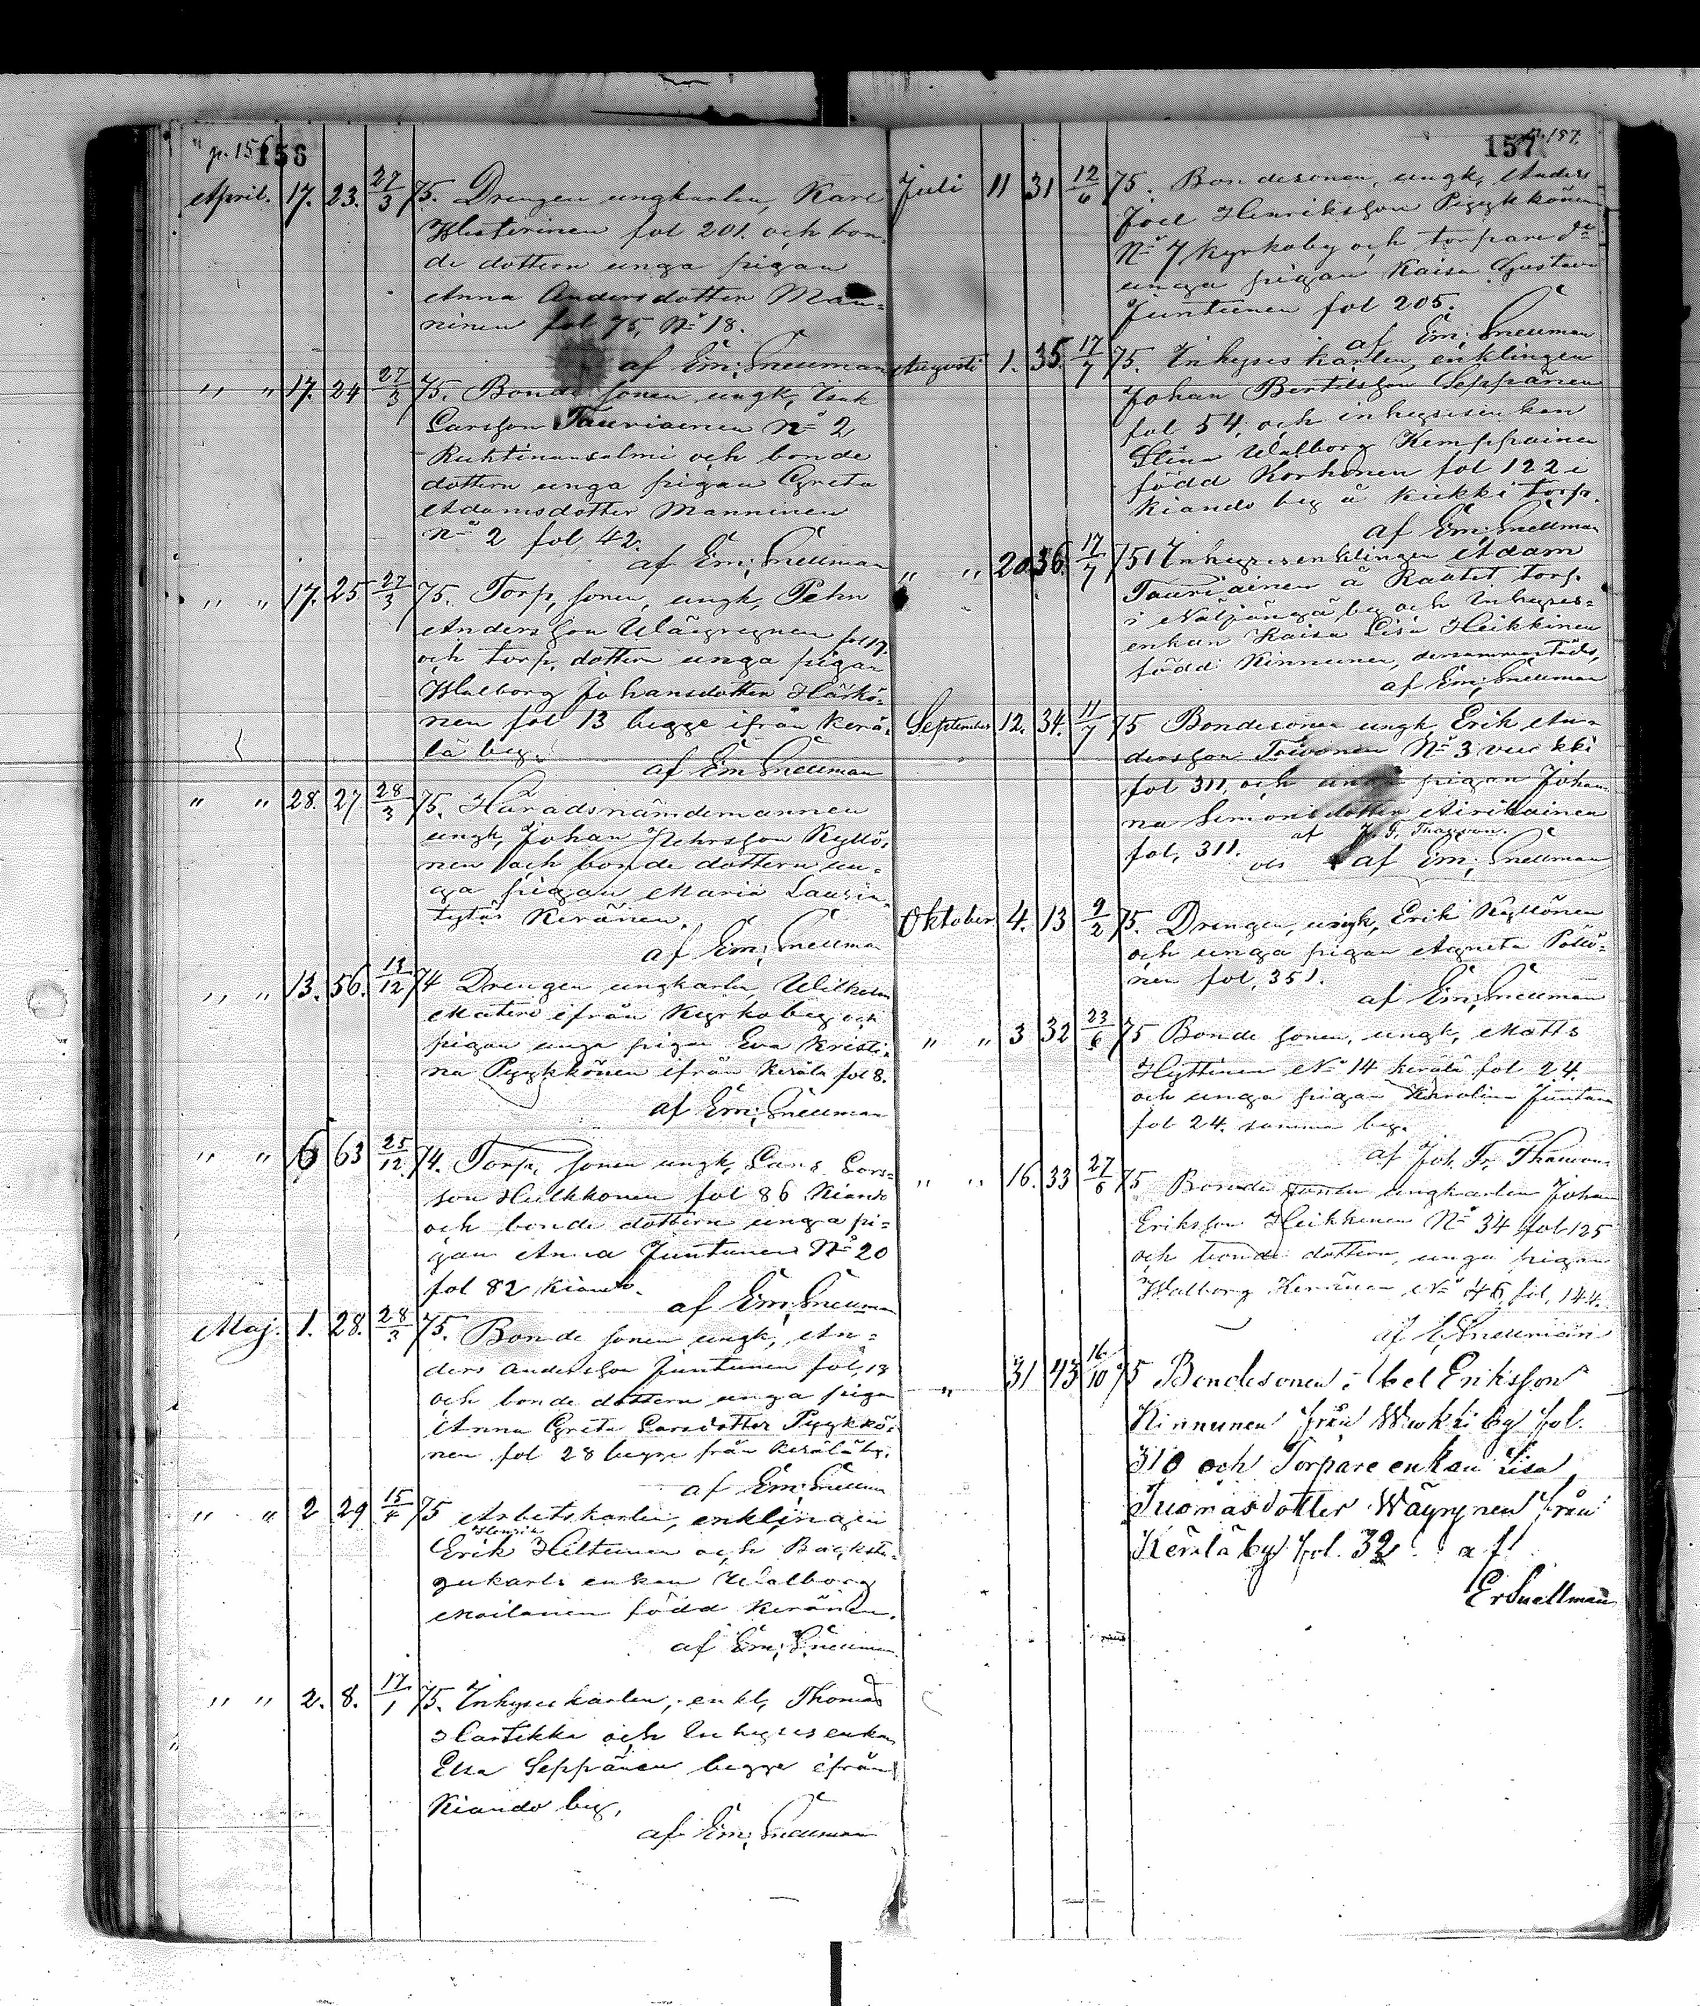 p. 156 156
April. 17. 23. 27/3 75. Drengen ungkarlen, Karl
fol 201. och bon-
de dottern unga pigan
Anna Andersdotter Man-
ninen fol 75, No 18.
af Em; Snellman
" " 17. 24 27/3 75. Bonde sonen ungk, Isak
Larsson Tauriainen No 2
Ruhtinansalmi och bonde
dottern unga pigan Greta
Adamsdotter Manninen
No 2 fol, 42.
af Em; Snellman
" " 17. 25 27/3 75. Torp, sonen, ungk, Petter
Andersson fol 17.
och torp, dottern unga pigan
Walborg Johansdotter Härkö-
nen fol 13 begge ifrån Kerä-
lä by.
af Em Snellman
" " 28. 27 28/3 75. Häradsnämdemannen
ungk, Johan Pehrsson Kyllö-
nen och bonde dottern un-
ga pigan Maria
Keränen.
af Em; Snellman
" " 13. 56. 13/12 74 Drengen ungkarlen, Wilhelm
Matero ifrån Kyrkoby och
pigan unga pigan Eva Kristi-
na Pyykkönen ifrån Kerälä fol 8.
af Em; Snellman
" " 6 63 25/12 74. Torp, sonen ungk, Lars Lars-
son Heikkonen fol 86 Kiando
och bonde dottern unga pi-
gan Anna Juntunen No 20
fol 82 Kiando.
af Em; Snellman
Maj. 1. 28. 28/3 75. Bonde sonen ungk, An-
ders Andersson Juntunen fol, 13
och bonde dottern unga pigan
Anna Greta Larsdotter Pyykkö-
nen fol 28 begge från Kerälä by.
af Em; Snellman
" " 2 29 15/4 75 Arbetskarlen, enklingen
Henrik
Erik Heltunen och Backstu-
gukarls enkan Walborg
Moilanen född Keränen.
af Em; Snellman
" " 2. 8. 17/1 75. Inhyseskarlen, enkl, Thomas
Hartikka och Inhyses enkan
Elsa Seppänen begge ifrån
Kiando by,
af Em; Snellman
157 p. 157.
Juli 11 31 12/6 75. Bondesonen, ungk, Anders
Joel Henriksson Pyykkönen
No 7 Kyrkoby och torpare dr
unga pigan Kaisa Gustava
Juntunen fol 205.
af Em; Snellman
Augusti 1. 35. 17/7 75. Inhyses karlen, enklingen
Johan Bertilsson Seppänen
fol 54, och inhysesenkan
Stina Walborg Kemppainen
född Korhonen fol 122 i
Kiando by å Kukki torp.
af Em; Snellman
" " 20. 36. 17/7 75 Inhysesenklingen Adam
Tauriainen å torp.
i Näljängä by och Inhyses-
enkan Kaisa Lisa Heikkinen
född Kinnunen, dersammastäds,
af Em; Snellman
September 12. 34. 11/7 75 Bondesonen ungk, Erik An-
dersson Toivonen No 3 Vuokki
fol 311, och unga pigan Johan-
na Simonsdotter Airikainen
af J. F. Thauvon.
fol, 311. och af Em; Snellman
Oktober 4. 13 9/2 75. Drengen, ungk, Erik Kyllönen
och unga pigan Agneta Pöllö-
nen fol, 351.
af Em; Snellman
" " 3 32 23/6 75 Bonde sonen, ungk, Matts
Hyttinen No 14 Kerälä fol 24.
och unga pigan Karolina Juntunen
fol 24. samma by.
af Joh. Fr. Thauvon
" " 16. 33 27/6 75 Bonde sonen ungkarlen Johan
Eriksson Heikkinen No 34 fol 125
och bonde dottern, unga pigan
Walborg Keränen No 46 fol, 144.
af E, Snellman
" 31 43 16/10 75 Bondesonen Abel Eriksson
Kinnunen från Wuokki by fol.
310 och Torpare enkan Lisa
Tuomasdotter Wäyrynen från
Kerälä by fol. 32 af
Er Snellman